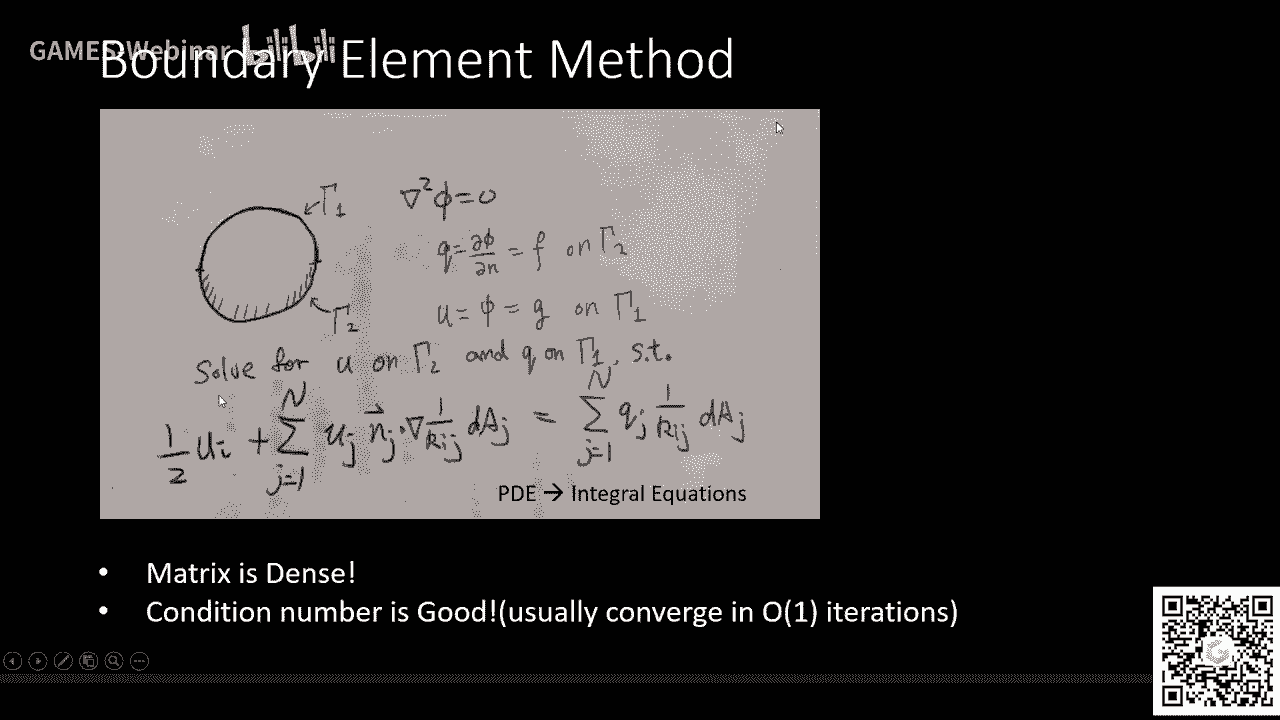 GAMES-Webinar bilibili
Boundary Element Method
Γ₁
∇²ϕ=0
q=∂ϕ/∂n = f on Γ₂
u = ϕ = g on Γ₁
Γ₂
Solve for u on Γ₂ and q on Γ₁, s.t.
1/2 uᵢ + ∑_{j=1}^{N} uⱼ n⃗ⱼ·∇ 1/Rᵢⱼ dAⱼ = ∑_{j=1}^{N} qⱼ 1/Rᵢⱼ dAⱼ
PDE → Integral Equations
• Matrix is Dense!
• Condition number is Good!(usually converge in O(1) iterations)